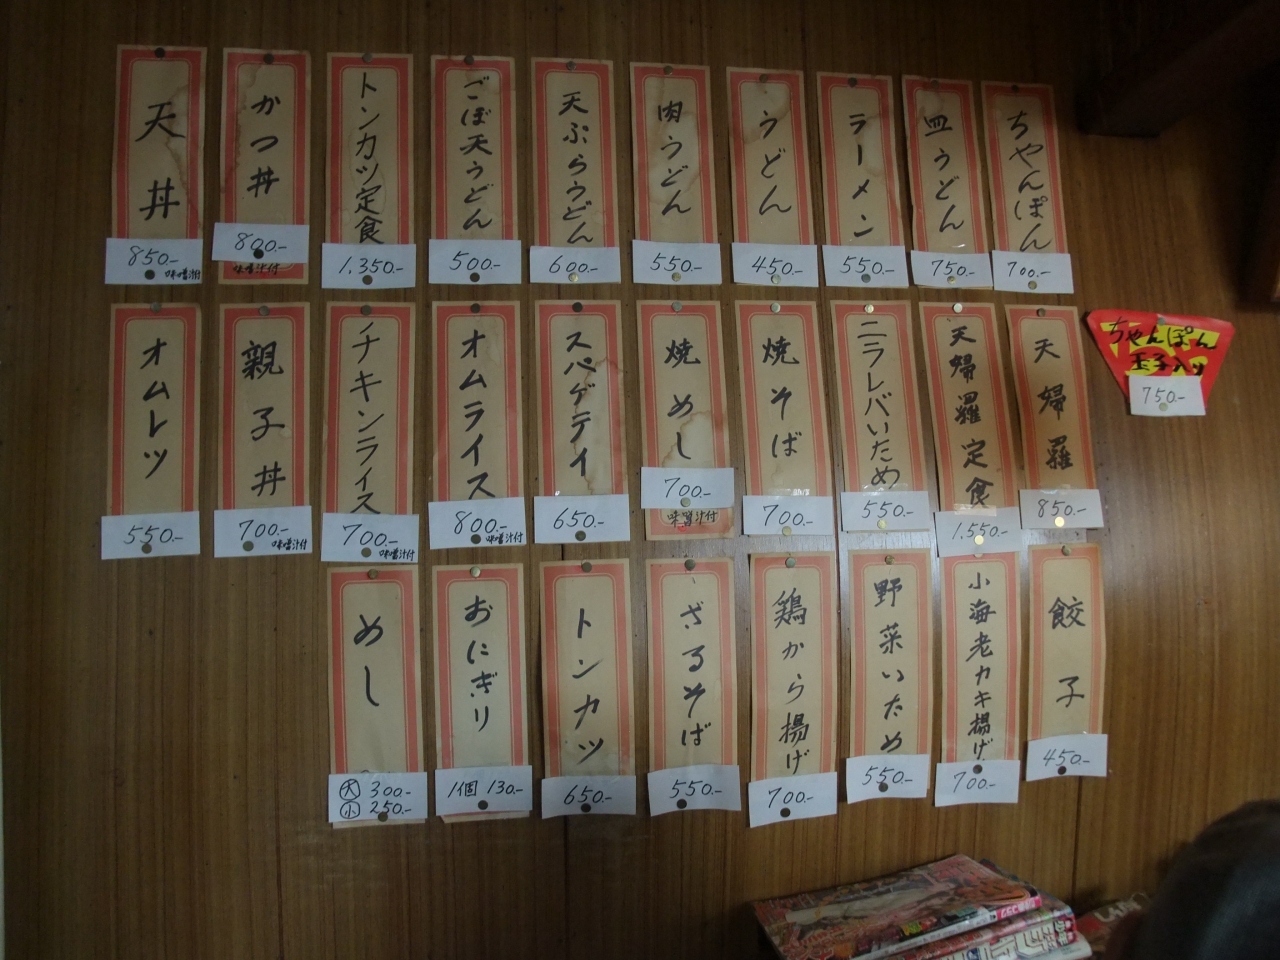 ちゃんぽん
700.-
皿うどん
750.-
ラーメン
550.-
うどん
450.-
肉うどん
550.-
天ぷらうどん
600.-
ごぼ天うどん
500.-
トンカツ定食
1.350.-
かつ丼
800.-
味噌汁付
天丼
850.-
味噌汁付
ちゃんぽん
玉子入り
750.-
天婦羅
850.-
天婦羅定食
1.550.-
ニラレバいため
550.-
焼そば
700.-
焼めし
700.-
味噌汁付
スパゲテイ
650.-
オムライス
800.-
味噌汁付
チキンライス
700.-
味噌汁付
親子丼
700.-
味噌汁付
オムレツ
550.-
餃子
450.-
小海老カキ揚げ
700.-
野菜いため
550.-
鶏から揚げ
700.-
ざるそば
550.-
トンカツ
650.-
おにぎり
1個 130.-
めし
大 300.-
小 250.-